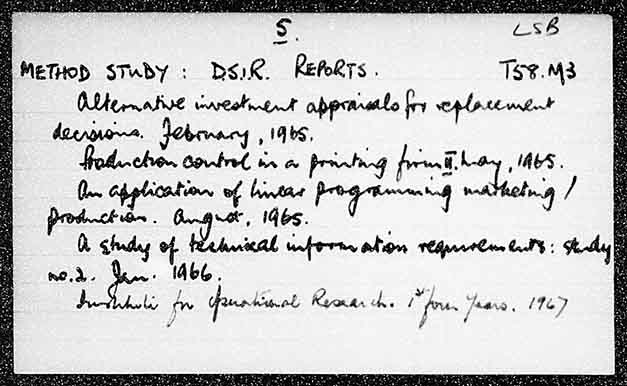 5.
LSB
METHOD STUDY : D.S.I.R. REPORTS. T58.M3
Alternative investment appraisals for replacement
decisions. February, 1965.
Production control in a printing firm II. May, 1965.
An application of linear programming marketing /
production. August, 1965.
A study of technical information requirements: study
no.2. Jan. 1966.
Institute for Operational Research. 1st four years. 1967